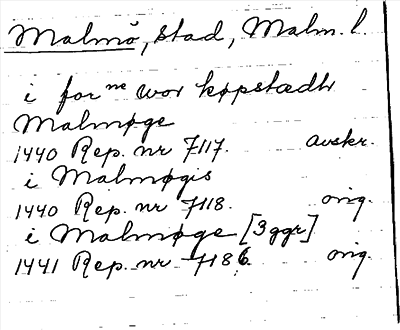 Malmö, stad, Malm. l.
i for ne wor køpstædh
Malmøge
1440 Rep. nr 7117. avskr.
i Malmøgis
1440 Rep. nr 7118. orig.
i Malmøge [3ggr]
1441 Rep. nr 7186. orig.